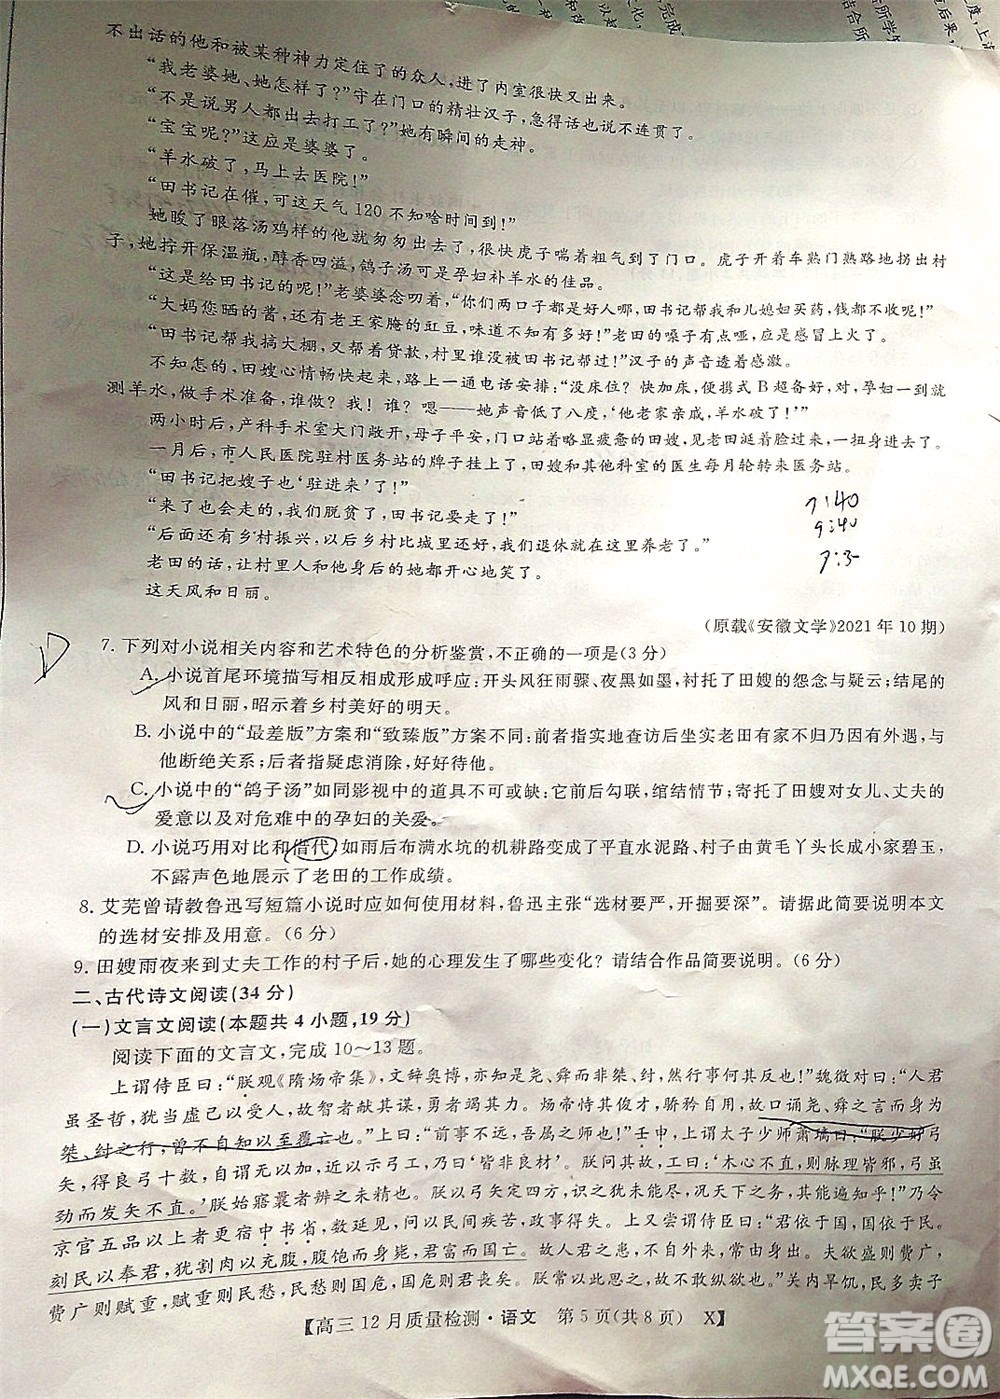 不出话的他和被某种神力定住了的众人，进了内室很快又出来。
“我老婆她、她怎样了？”守在门口的精壮汉子，急得话也说不连贯了。
“不是说男人都出去打工了？”她有瞬间的走神。
“宝宝呢？”这应是婆婆了。
“羊水破了，马上去医院！”
“田书记在催，可这天气120不知啥时间到！”
她睃了眼落汤鸡样的他就匆匆出去了，很快虎子喘着粗气到了门口。虎子开着车熟门熟路地拐出村
子，她拧开保温瓶，醇香四溢，鸽子汤可是孕妇补羊水的佳品。
“这是给田书记的哪！”老婆婆念叨着，“你们两口子都是好人哪，田书记帮我和儿媳妇买药，钱都不收！”
“大妈您晒的酱，还有老王家腌的豇豆，味道不知有多好！”老田的嗓子有点哑，应是感冒上火了。
“田书记帮我搞大棚，帮着贷款，村里没少被田书记帮过！”汉子的声音透着感激。
不知怎的，田嫂心情畅快起来，路上一通电话安排：“没床位？快加床，便携式B超备好，对，孕妇一到就
测羊水，做手术准备，谁做？我！谁？嗯——她声音低了八度，‘他老家亲戚，羊水破了！’”
两小时后，产科手术室大门敞开，母子平安，门口站着略显疲惫的田嫂，见老田歪着脸笑，一扭身进去了。
一月后，市人民医院驻村医务站的牌子挂上了，田嫂和其他科室的医生每月轮转来医务站。
“田书记把嫂子也‘驻进来’了！”
“来了也会走的，我们脱贫了，田书记要走了！”
“后面还有乡村振兴，以后乡村比城里还好呢，我们退休就在这里养老了。”
老田的话，让村里人和他身后的她都开心地笑了。
这天风和日丽。
7:40
9:40
7:5
（原载《安徽文学》2021年10期）
7. 下列对小说相关内容和艺术特色的分析鉴赏，不正确的一项是（3分）
D
A. 小说首尾环境描写相反相成形成呼应：开头风狂雨骤、夜黑如墨，衬托了田嫂的怨念与疑云；结尾的
风和日丽，昭示着乡村美好的明天。
B. 小说中的“最差版”方案和“致臻版”方案不同：前者指实地查访后坐实老田有家不归乃因有外遇，与
他断绝关系；后者指疑虑消除，好好待他。
C. 小说中的“鸽子汤”如同影视中的道具不可或缺：它前后勾联，绾结情节；寄托了田嫂对女儿、丈夫的
爱意以及对危难中的孕妇的关爱。
D. 小说巧用对比和借代，如雨后布满水坑的机耕路变成了平直水泥路、村子由黄毛丫头长成小家碧玉，
不露声色地展示了老田的工作成绩。
8. 艾芜曾请教鲁迅写短篇小说时应如何使用材料，鲁迅主张“选材要严，开掘要深”。请据此简要说明本文
的选材安排及用意。（6分）
9. 田嫂雨夜来到丈夫工作的村子后，她的心理发生了哪些变化？请结合作品简要说明。（6分）
二、古代诗文阅读（34分）
（一）文言文阅读（本题共4小题，19分）
阅读下面的文言文，完成10～13题。
上谓侍臣曰：“朕观《隋炀帝集》，文辞奥博，亦知是尧、舜而非桀、纣，然行事何其反也！”魏徵对曰：“人君
虽圣哲，犹当虚己以受人，故智者献其谋，勇者竭其力。炀帝恃其俊才，骄矜自用，故口诵尧、舜之言而身为
桀、纣之行，曾不自知以至覆亡也。”上曰：“前事不远，吾属之师也！”壬申，上谓太子少师萧瑀曰：“朕少好弓
矢，得良弓十数，自谓无以加，近以示弓工，乃曰‘皆非良材’。朕问其故，工曰：‘木心不直，则脉理皆邪，弓虽
劲而发矢不直。’朕始寤曩者辨之未精也。朕以弓矢定四方，识之犹未能尽，况天下之务，其能遍知乎！”乃令
京官五品以上更宿中书省，数延见，问以民间疾苦，政事得失。上又尝谓侍臣曰：“君依于国，国依于民。
刻民以奉君，犹割肉以充腹，腹饱而身毙，君富而国亡。故人君之患，不自外来，常由身出。夫欲盛则费广，
费广则赋重，赋重则民愁，民愁则国危，国危则君丧矣。朕常以此思之，故不敢纵欲也。”关内旱饥，民多卖子
【高三12月质量检测·语文 第5页（共8页） X】
答案圈
MXQE.COM